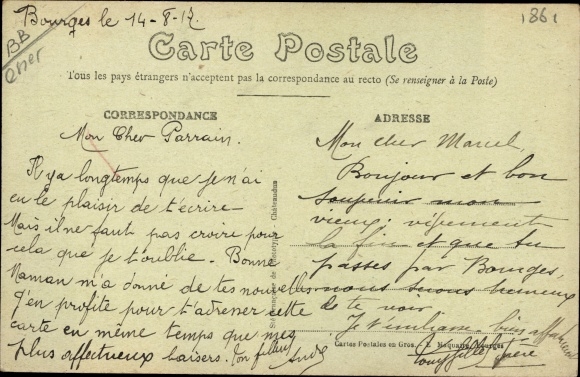 Bourges le 14-8-17
1861
BB
Cher
Carte Postale
Tous les pays étrangers n'acceptent pas la correspondance au recto (Se renseigner à la Poste)
CORRESPONDANCE
Mon Cher Parrain.
Il y a longtemps que je n'ai
eu le plaisir de t'écrire
Mais il ne faut pas croire pour
cela que je t'oublie. Bonne
Maman m'a donné de tes nouvelles
J'en profite pour t'adresser cette
carte en même temps que mes
plus affectueux baisers. Ton filleul
André
ADRESSE
Mon cher Marcel,
Bonjour et bon
mon
vieux: vivement
la fin et que tu
passes par Bourges,
nous serons heureux
de te voir
Je t'embrasse bien affectueusement
frère
Cartes Postales en Gros.
Bourges
Châteaudun